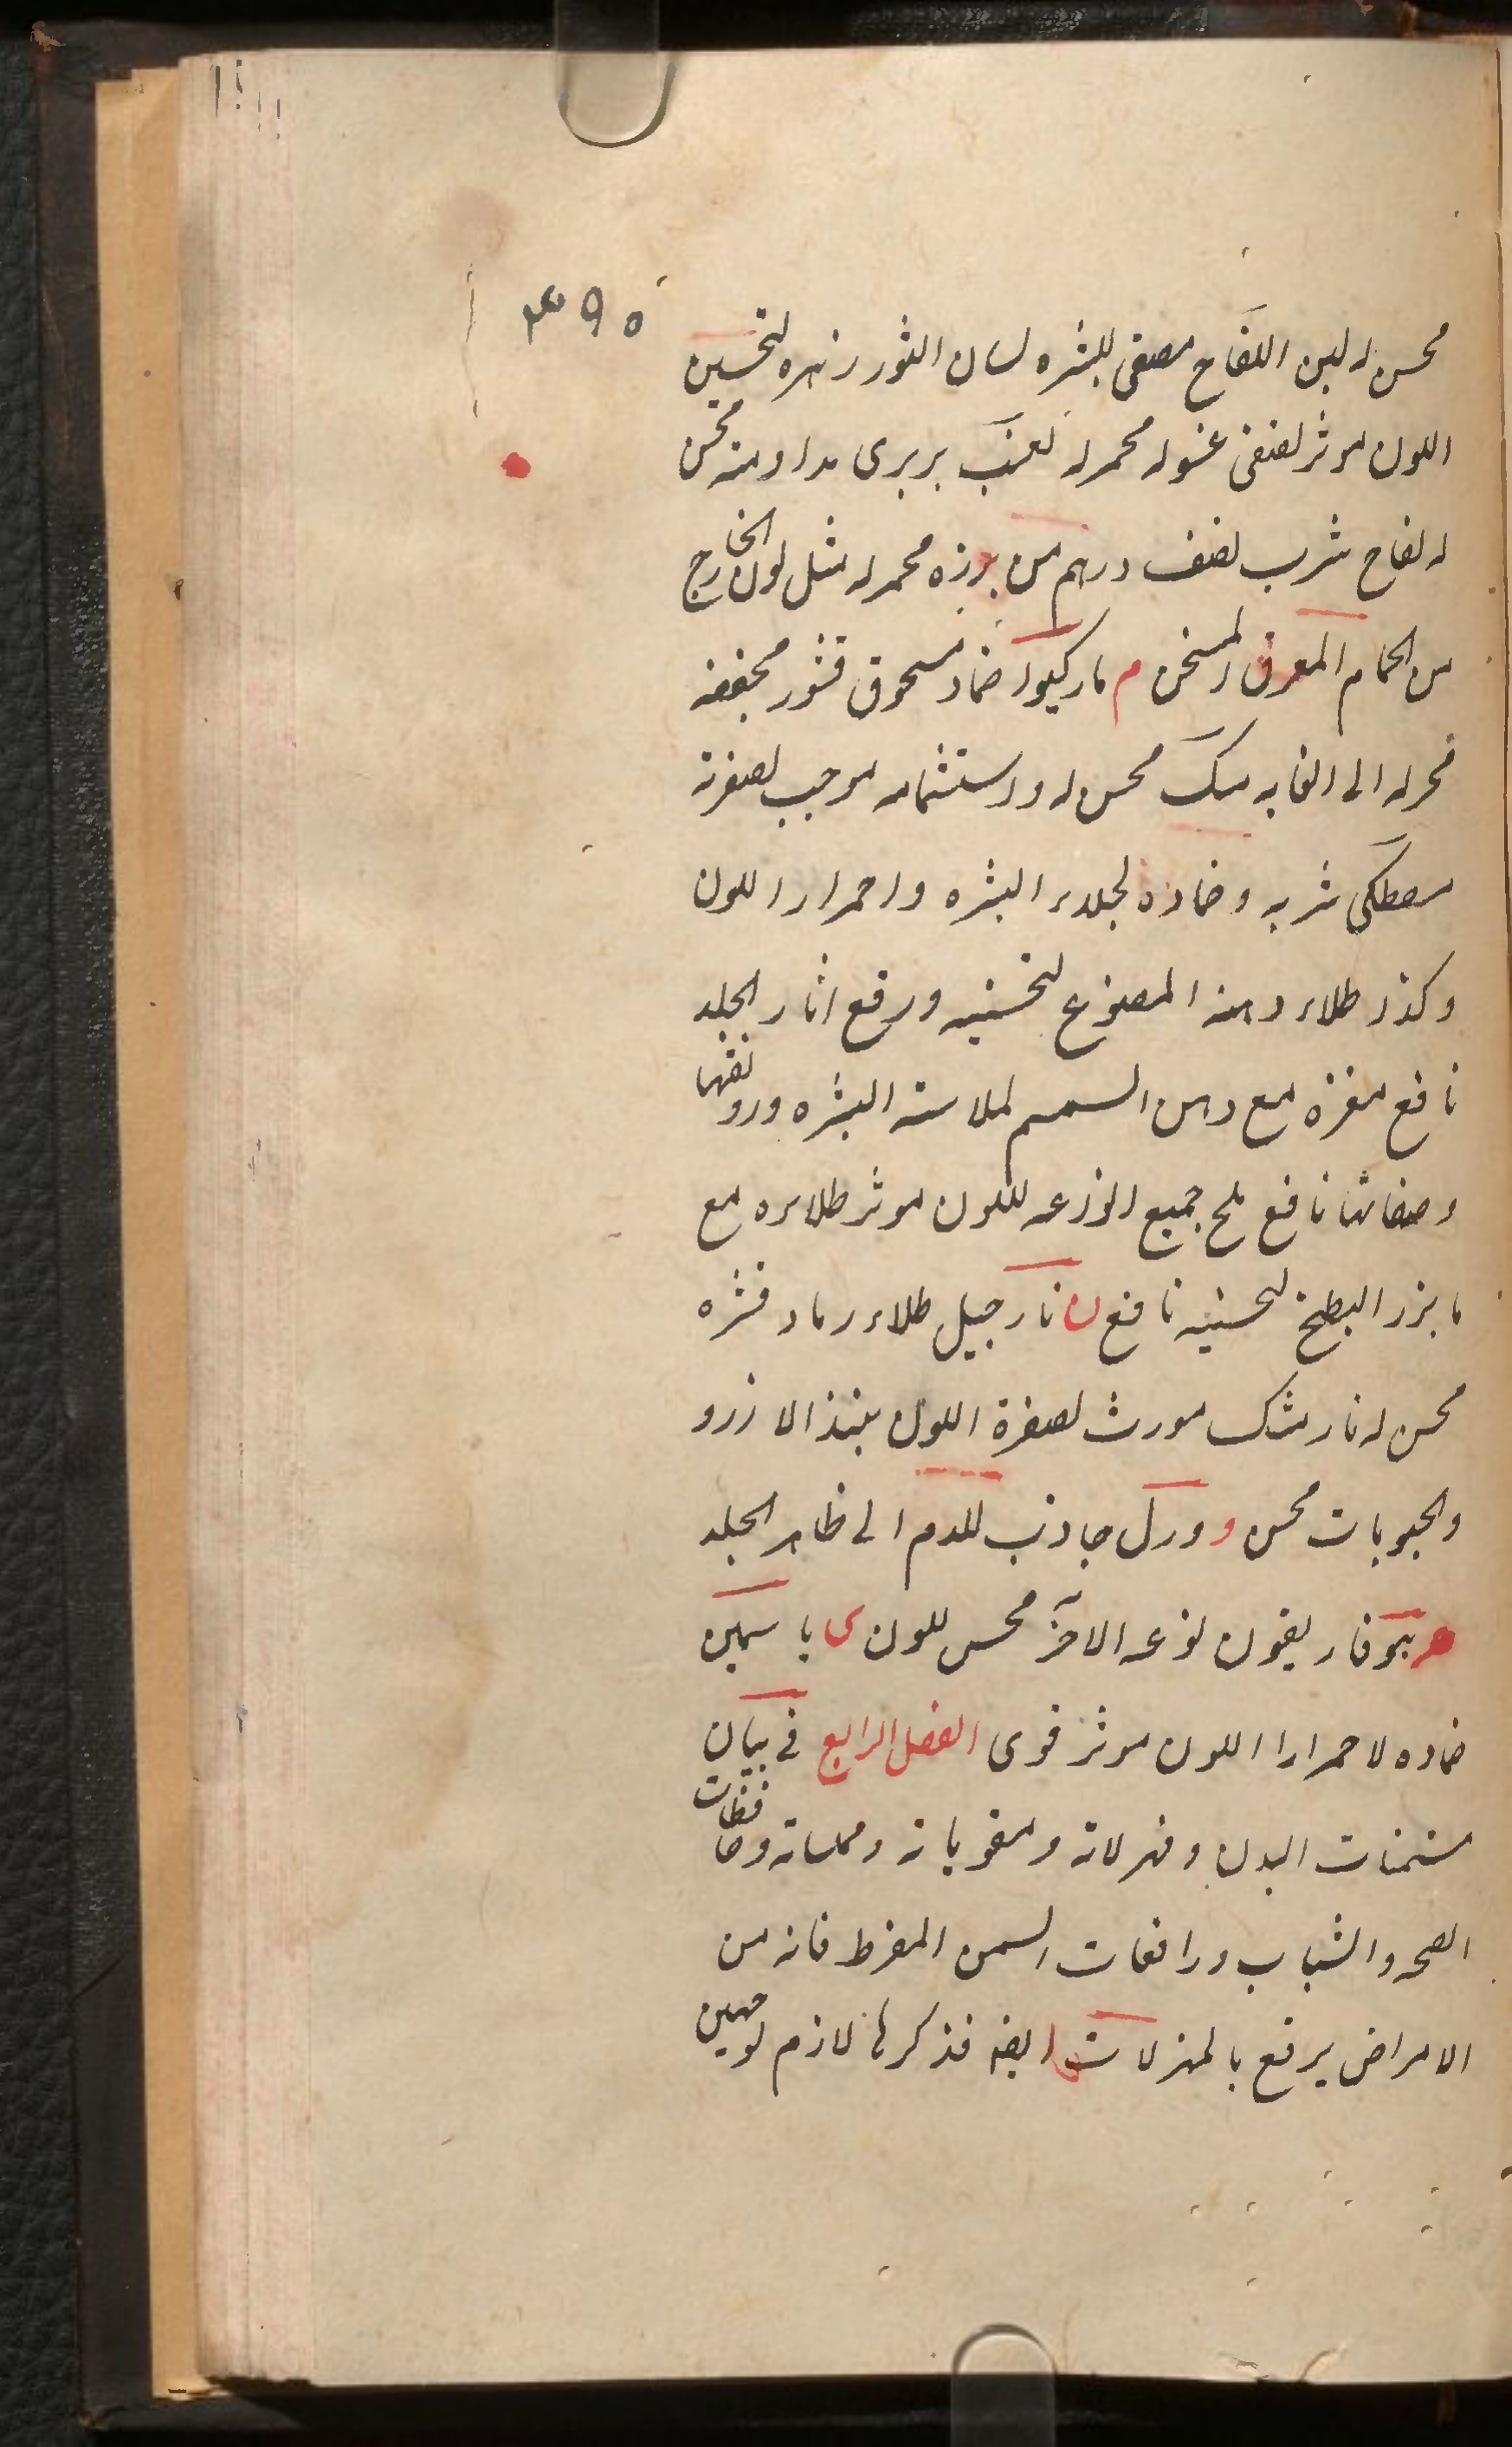 ۴۹۵
محسن له لبن اللقاح مصفى للبشره لسان الثور زهره لتحسين
اللون موثر لعنقى غسوله محمر له لعنب بربرى مداومته محسن
له لفاح شرب نصف درهم من بزره محمر له مثل لون الخارج
من الحمام المعرق المسخن م ماركيوا ضماد مسحوق قشور مجففه
محمر له الى الغايه مسك محسن له واستشمامه موجب لصفرته
مصطكى شربه وضماده لجلاء البشره واحمرار اللون
وكذا طلاء دهنه المصنوع لتحسينه ورفع اثار الجلد
نافع مغزه مع دهن السمسم لملاسته البشره ورونقها
وصفائها نافع ملح جميع انواعه لللون موثر طلاءه مع
ما بزر البطيخ لتحسينه نافع ن نارجيل طلاء رماد قشره
محسن له نارمشك مورث لصفرة اللون نبيذ الارز و
والحبوبات محسن و ورل جاذب للدم الى ظاهر الجلد
ه هيوفاريقون نوعه الاخر محسن للون ى ياسمين
ضماده لاحمرار اللون موثر قوى الفصل الرابع فى بيان
مسمنات البدن ومهزلاته ومقوياته ومملساته وحافظات
الصحه والشباب ورافعات السمن المفرط فانه من
الامراض يرفع بالمهزلات ايضه فذكرها لازم لوجهين